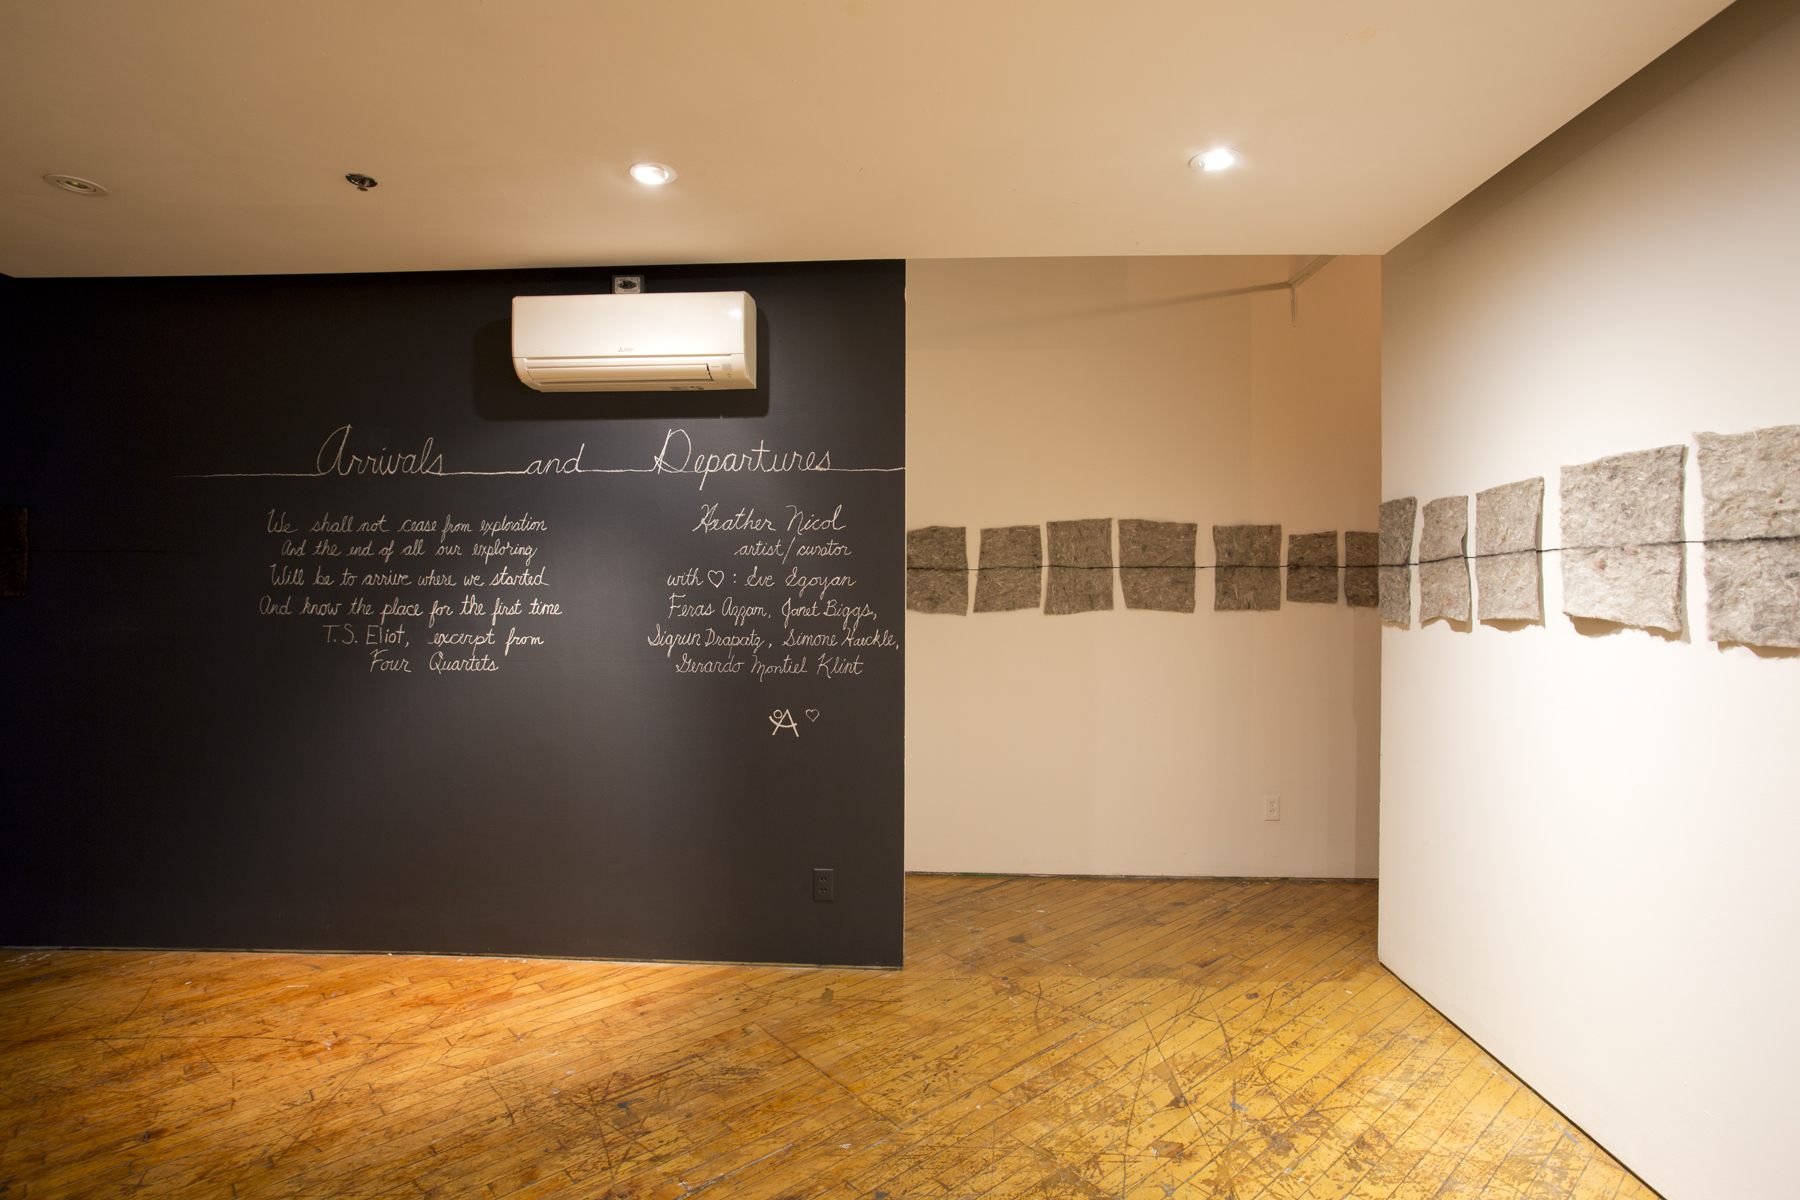 Arrivals and Departures
We shall not cease from exploration
And the end of all our exploring
Will be to arrive where we started
And know the place for the first time
T.S. Eliot, excerpt from
Four Quartets
Heather Nicol
artist/curator
with ♡: Eve Egoyan
Feras Azzam, Janet Biggs,
Sigrun Drapatz, Simone Haeckle,
Gerardo Montiel Klint